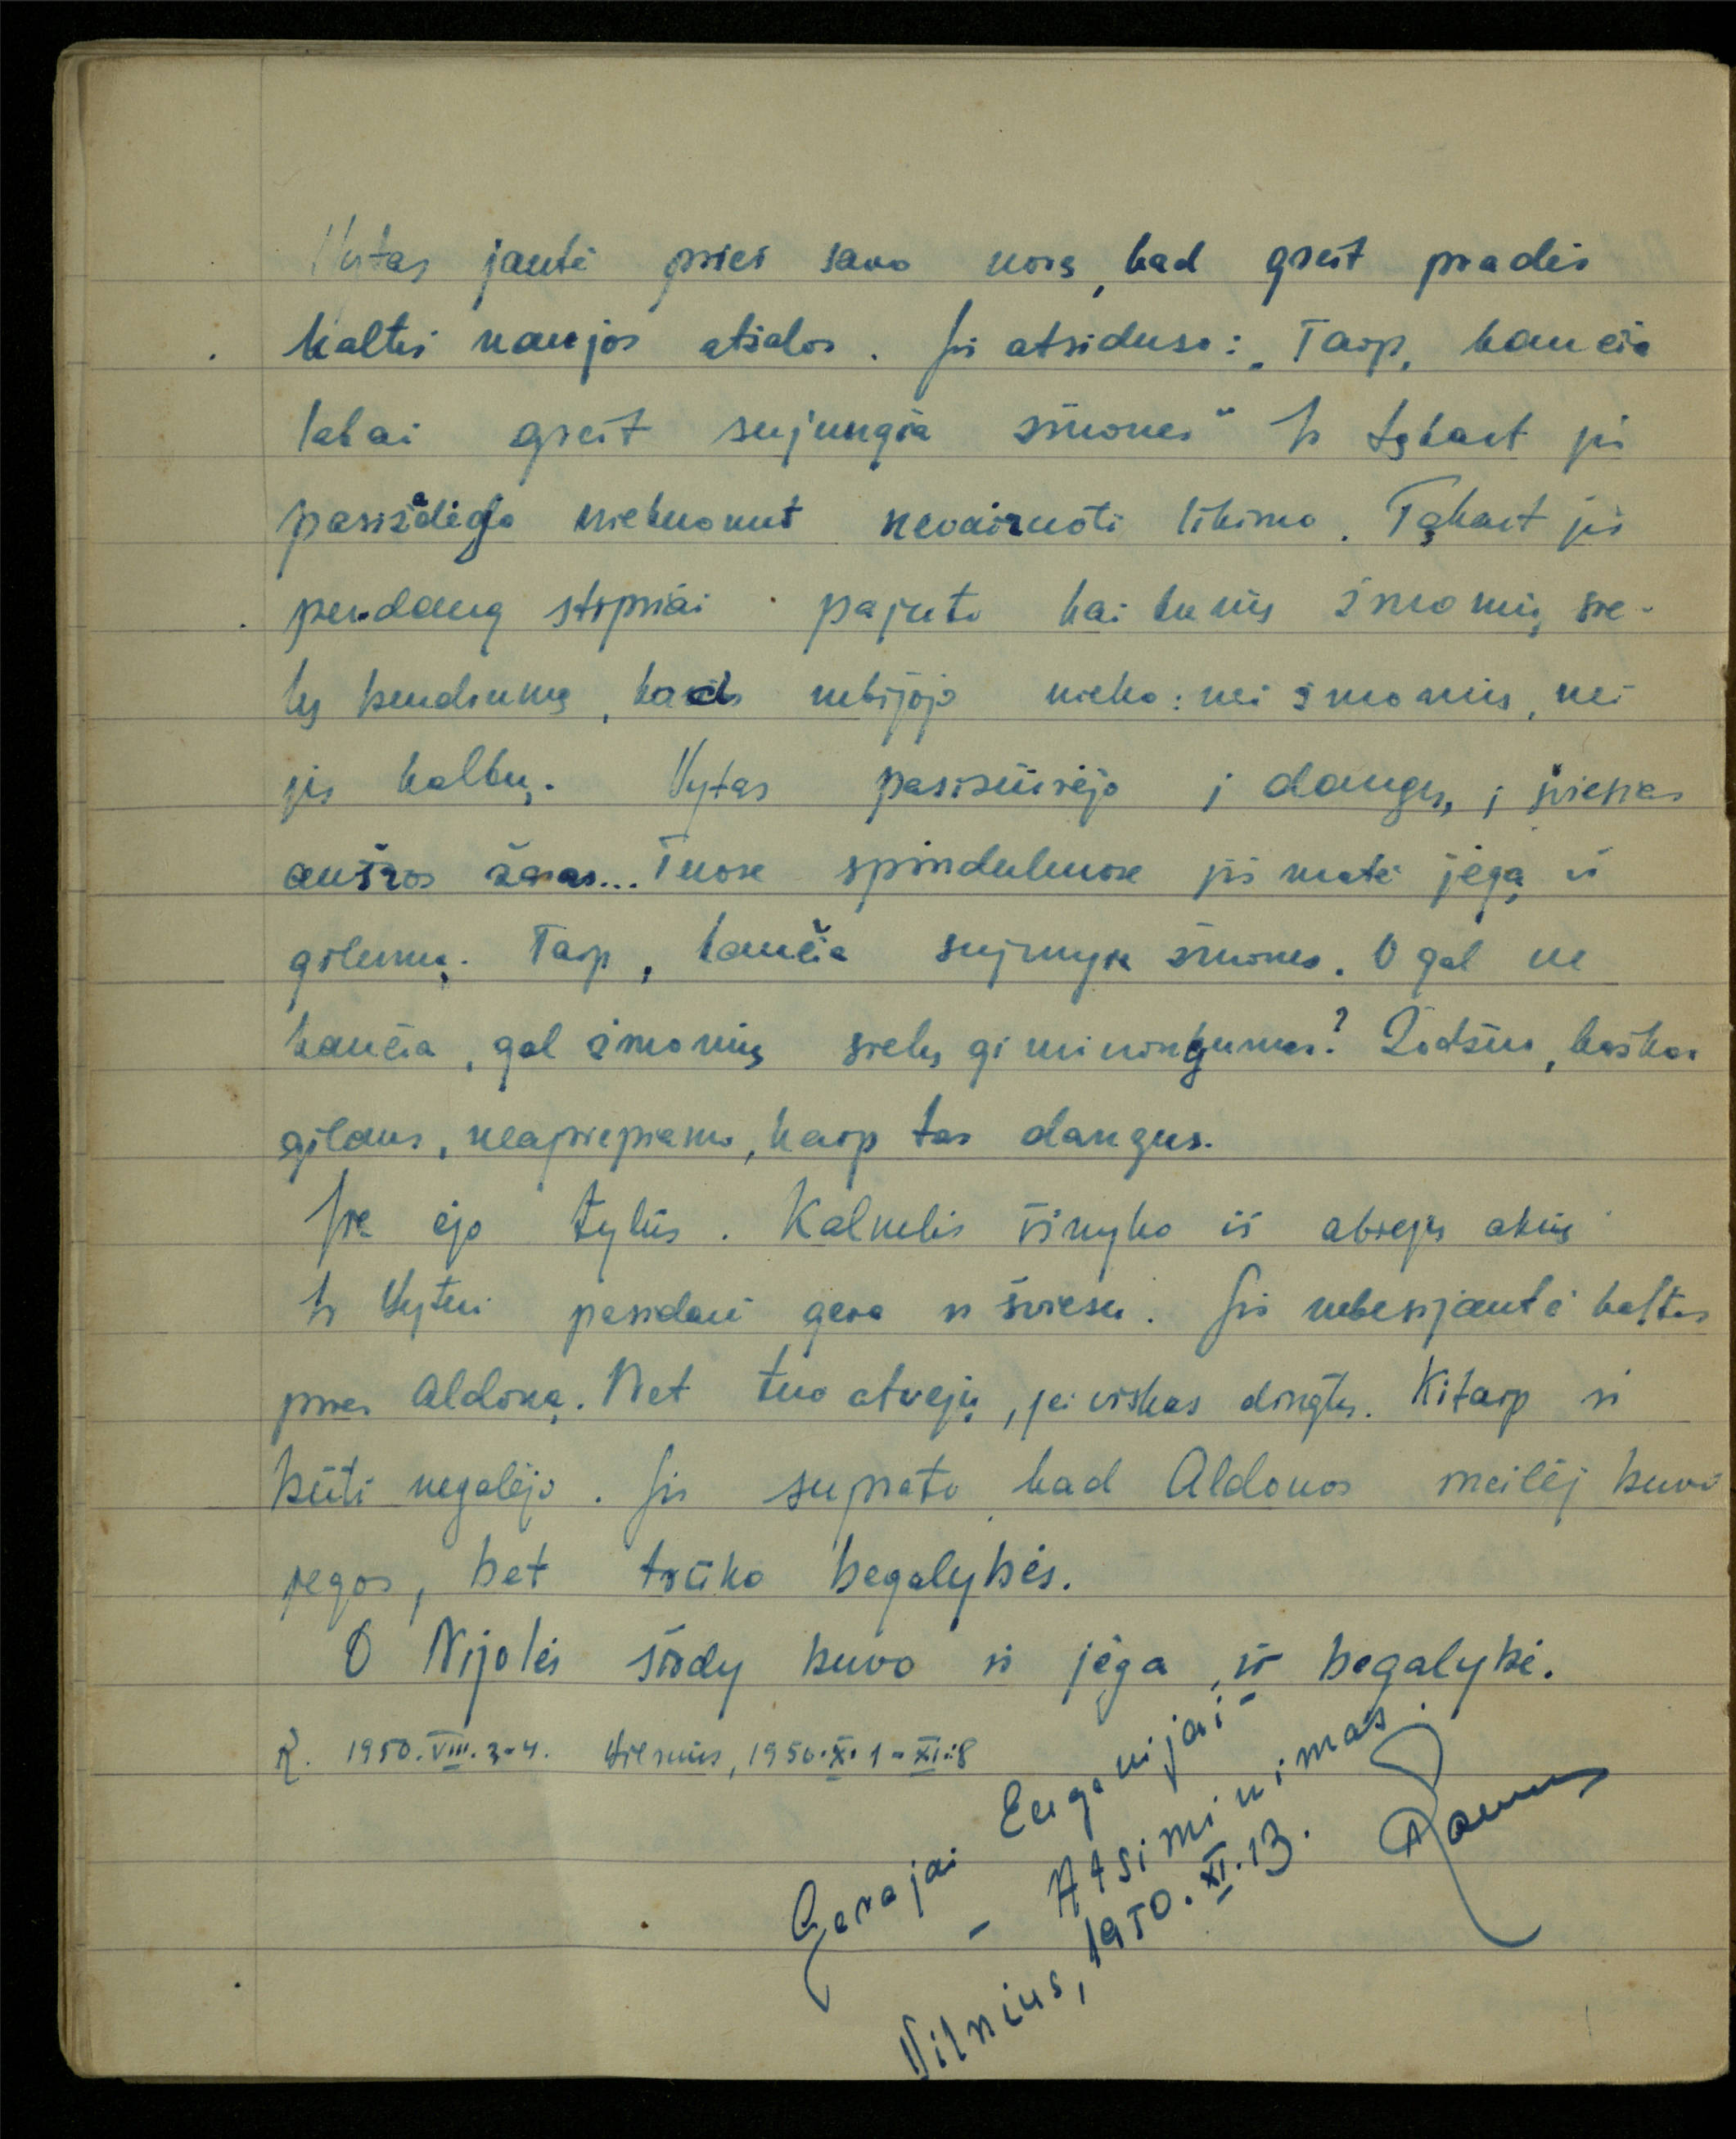 Vytas jautė prieš savo norą, kad greit pradės
kaltis naujos atžalos. Jis atsiduso: „Taip, kančia
labai greit sujungia žmones“ Ir tąkart jis
pasižadėjo niekuomet nevairuoti likimo. Tąkart jis
perdaug stipriai pajuto kai kurių žmonių sie-
lų bendrumą, kad nebijojo nieko: nei žmonių, nei
jų kalbų. Vytas pasižiūrėjo į dangų, į šviesias
aušros žaras... Tuose spinduliuose jis matė jėgą ir
gilumą. Taip, kančia sujungia žmones. O gal ne
kančia, gal žmonių sielų giminingumas? Žodžiu, kažkas
gilaus, neaprėpiamo, kaip tas dangus.
Jie ėjo tylūs. Kalnelis išnyko iš abiejų akių
Ir Vytui pasidarė gera ir šviesu. Jis nebesijautė kaltas
prieš Aldoną. Net tuo atveju, jei viskas dingtų. Kitaip ir
būti negalėjo. Jis suprato, kad Aldonos meilėj buvo
jėgos, bet trūko begalybės.
O Nijolės širdy buvo ir jėga, ir begalybė.
R. 1950.VIII.3-4. Vilnius, 1950.X.1-XI.8
Gerajai Eugenijai -
- Atsiminimas.
Vilnius, 1950.XI.13.